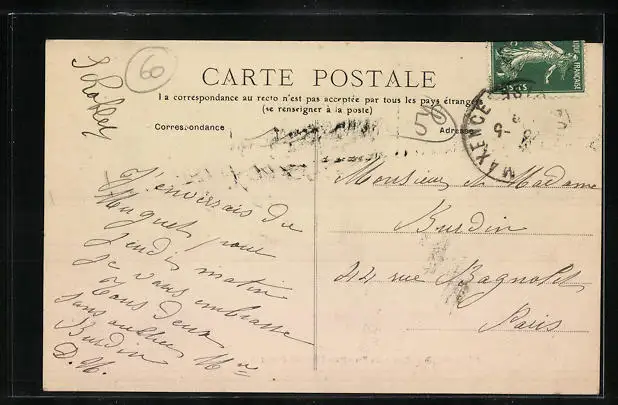 60
CARTE POSTALE
La correspondance au recto n'est pas acceptée par tous les pays étrangers
(se renseigner à la poste)
Correspondance
Adresse
MAXENCE
J'enverrais du
Muguet pour
jeudi matin
Je vous embrasse
tous deux
sans oublier Mme
Burdin
D. H.
Monsieur et Madame
Burdin
42 rue Bagnolet
Paris